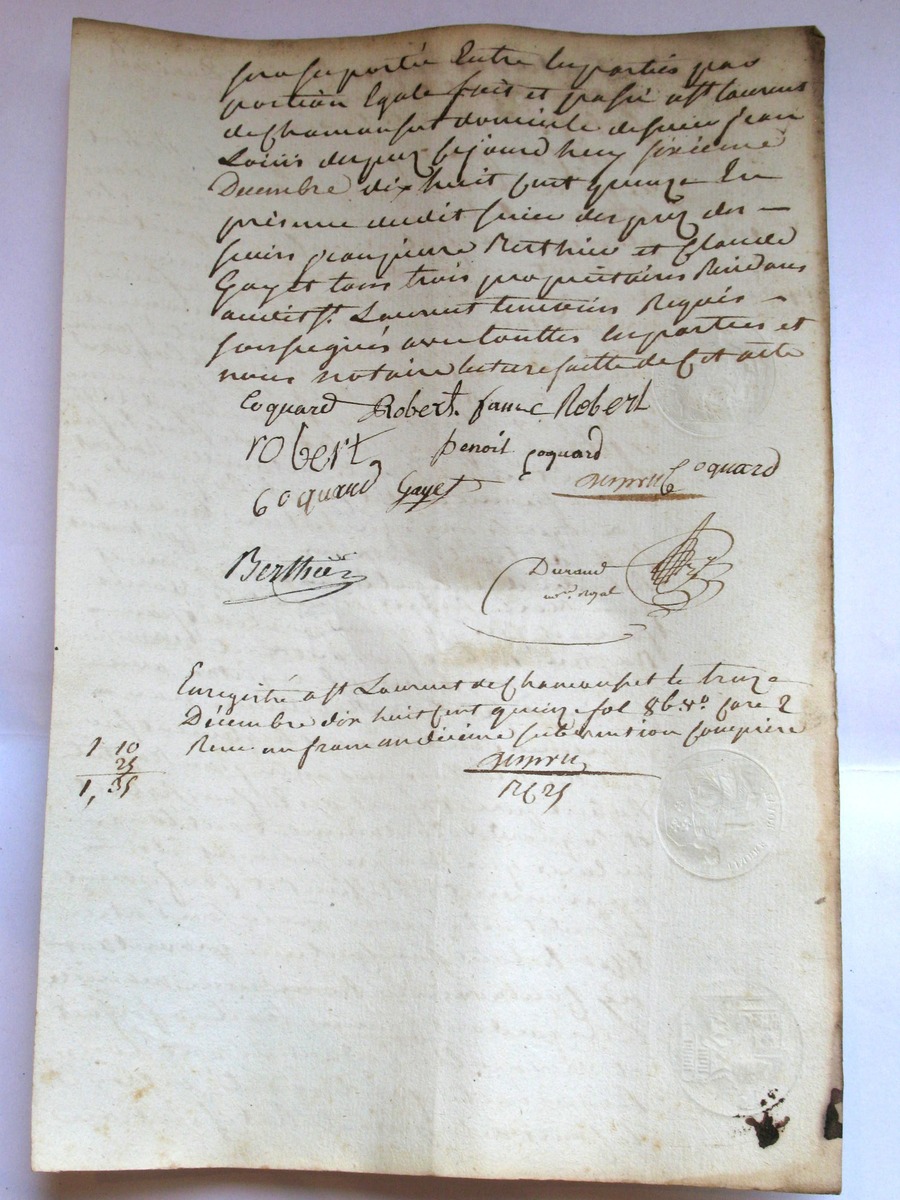 sera suportée Entre les parties par
portion Egale fait et passé a St Laurent
de Chamousset domicile de sieur jean
Louis despuy cejourd'huy sixieme
Decembre dix huit cent quinze En
présence dudit sieur des des -
sieurs jean pierre Berthier et Claude
Gayet tous trois propriétaires Residans
audit St. Laurent temoins Requis -
soussignés avec touttes les parties et
nous notaire lecture faitte de Cet acte
Coquard Robert. franc Robert
robert benoit Coquard
Coquard Gayet Coquard
Berthier
Durand
no.re royal
Enregistré a St Laurent de Chamousset le treize
Décembre dix huit cent quinze fol 86 Vo. Case 2
Reçu un franc un décime subvention Comprise
1 10
25
1, 35